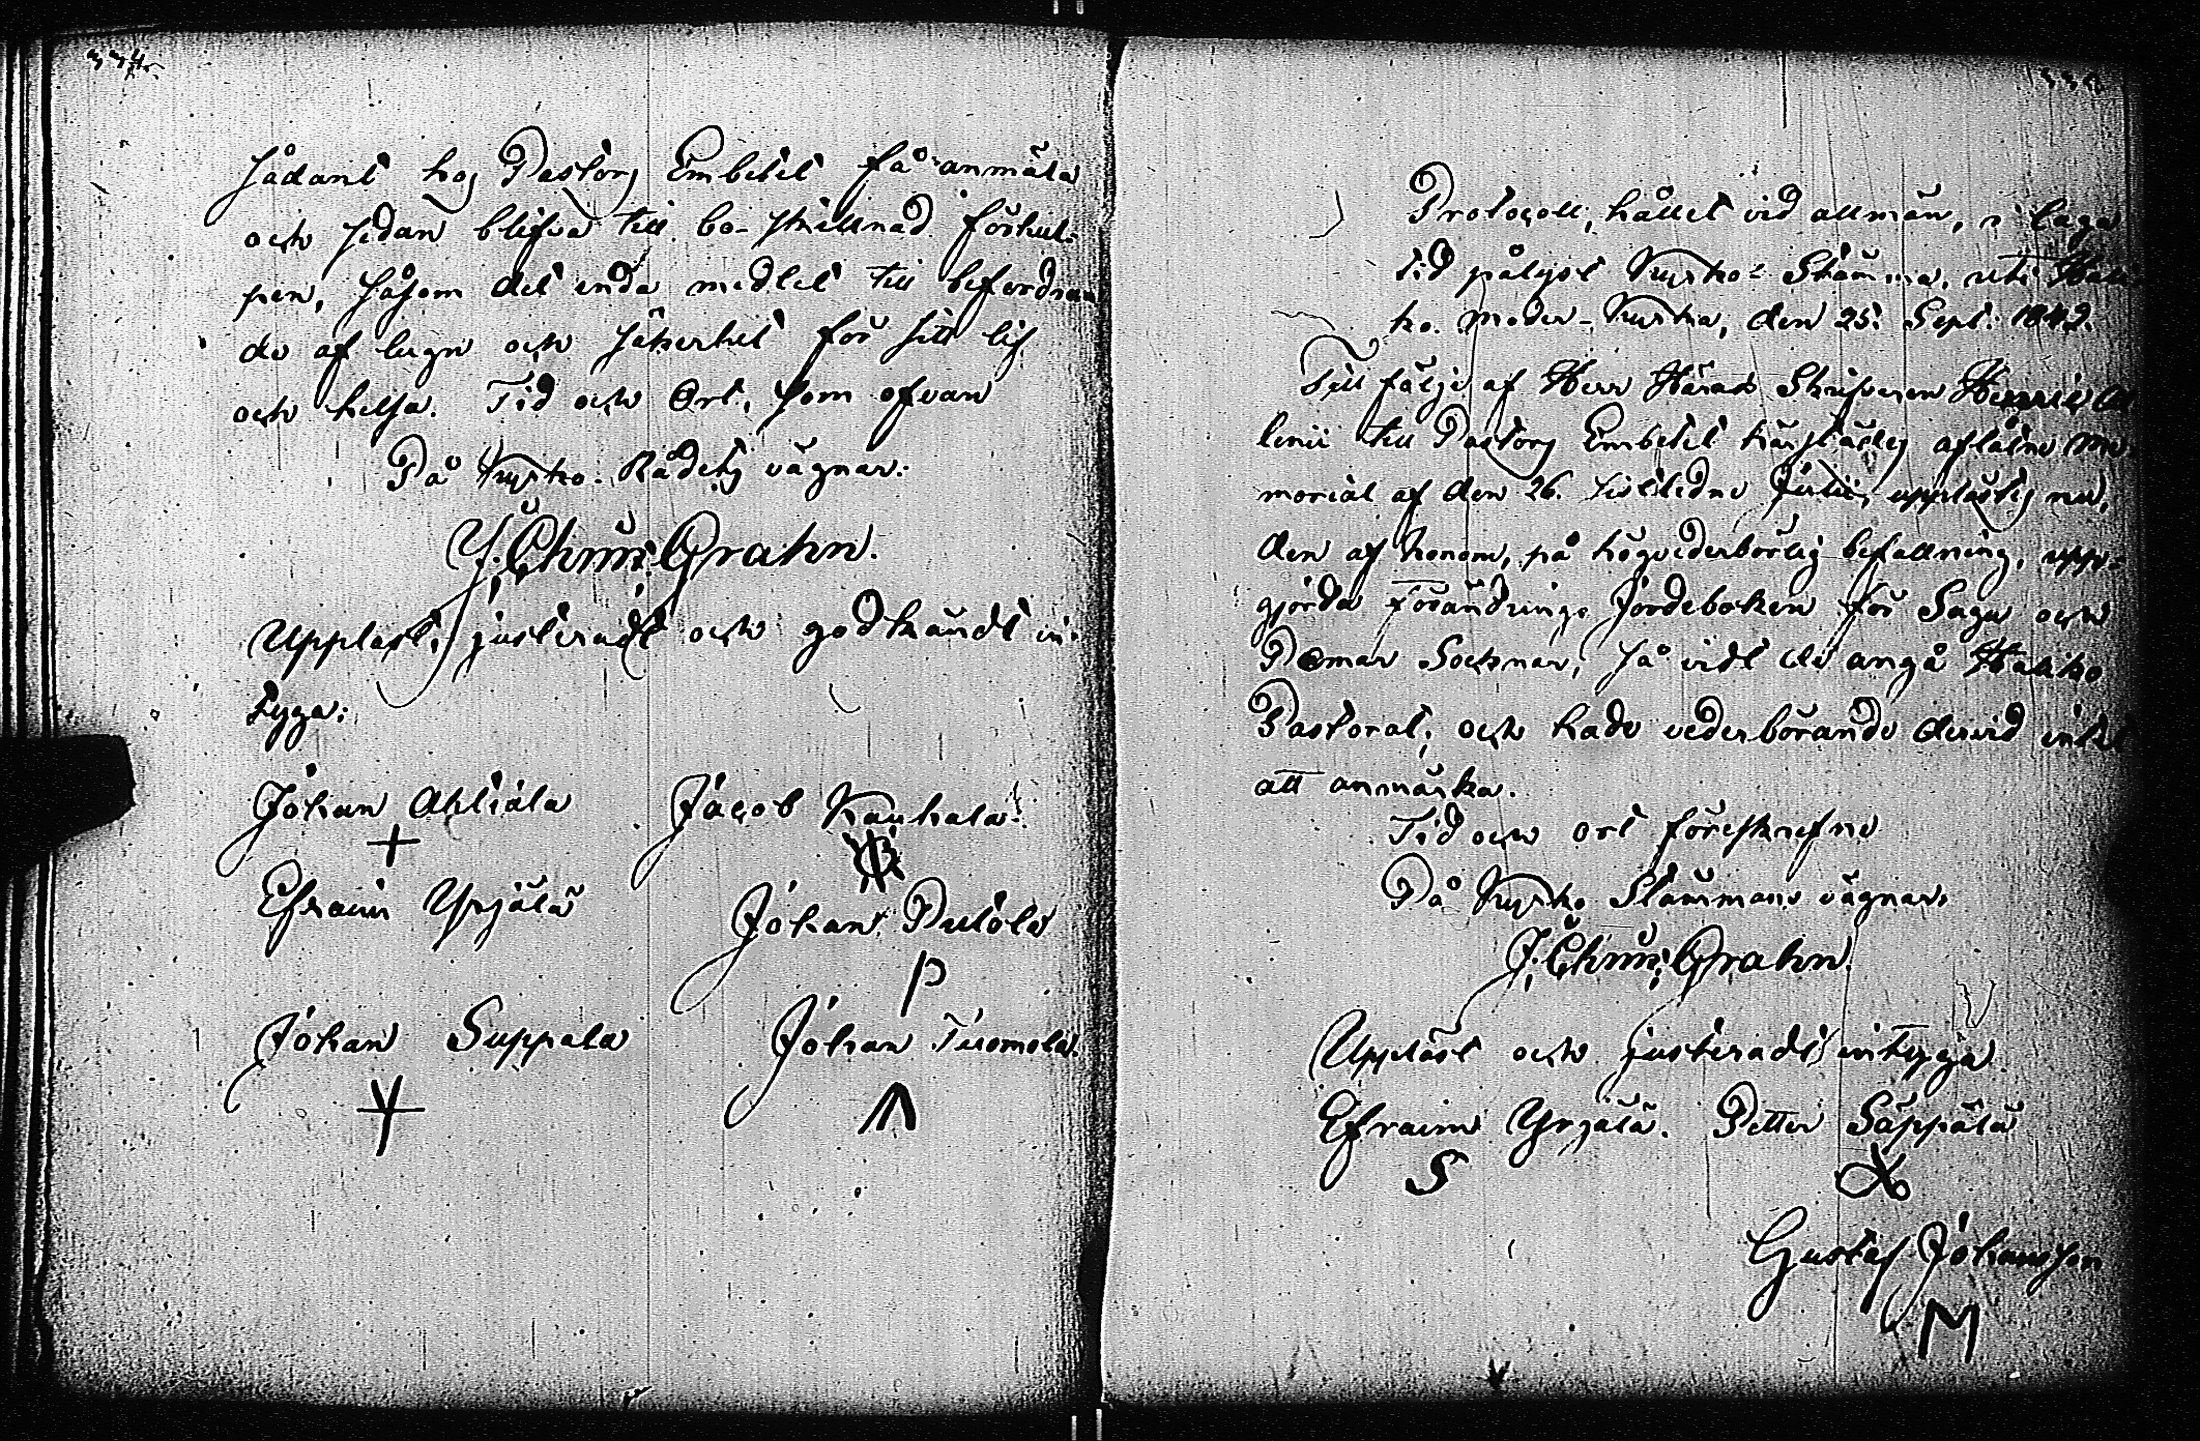 334.
sådant hos Pastors Embetet få anmäla
och sedan blifva till bo-skillnad förhul-
pen, såsom det enda medlet till befordran-
de af lugn och säkerhet för sitt lif
och helsa. Tid och Ort, som ofvan
På Kyrko-Rådets vägnar:
J. Chriſt: Grahn.
Uppläst, justeradt och godkändt in-
tyga:
Johan Ahliala Jacob Kauhala
Efraim Yrjälä Johan Putola
P
Johan Suppala Johan Tuomola
335
Protocoll, hållet vid allmän, i laga
tid pålyst Kyrko-Stämma, uti Hali-
ko Moder-Kyrka, den 25. Sept. 1842.
Till följe af Herr Härads Skrifveren
lenii till Pastors Embetet härstädes aflåtne Me-
morial af den 26. sistledne Julii, upplästes nu,
den af honom, på högvederbörlig befallning, upp-
gjorda Förändrings Jordeboken för Sagu och
Pemar Socknar, så vidt de angå Haliko
Pastorat, och hade vederbörande dervid intet
att anmärka.
Tid och ort föreskrefne
På Kyrko Stämmans vägnar,
J. Chriſt: Grahn.
Uppläst och justeradt, intyga
Efraim Yrjälä. Petter Säppälä
S
Gustaf Johansson
M